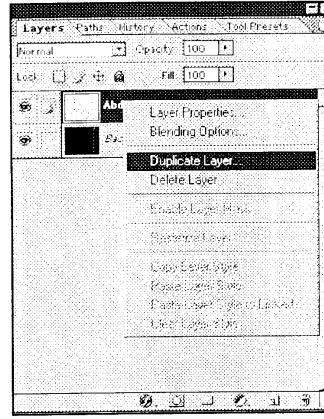 Layers Paths History Actions Tool Presets
Normal Opacity: 100
Lock: Fill: 100
Layer Properties...
Blending Options...
Duplicate Layer...
Delete Layer
Enable Layer Mask
Rasterize Layer
Copy Layer Style
Paste Layer Style
Paste Layer Style to Linked
Clear Layer Style